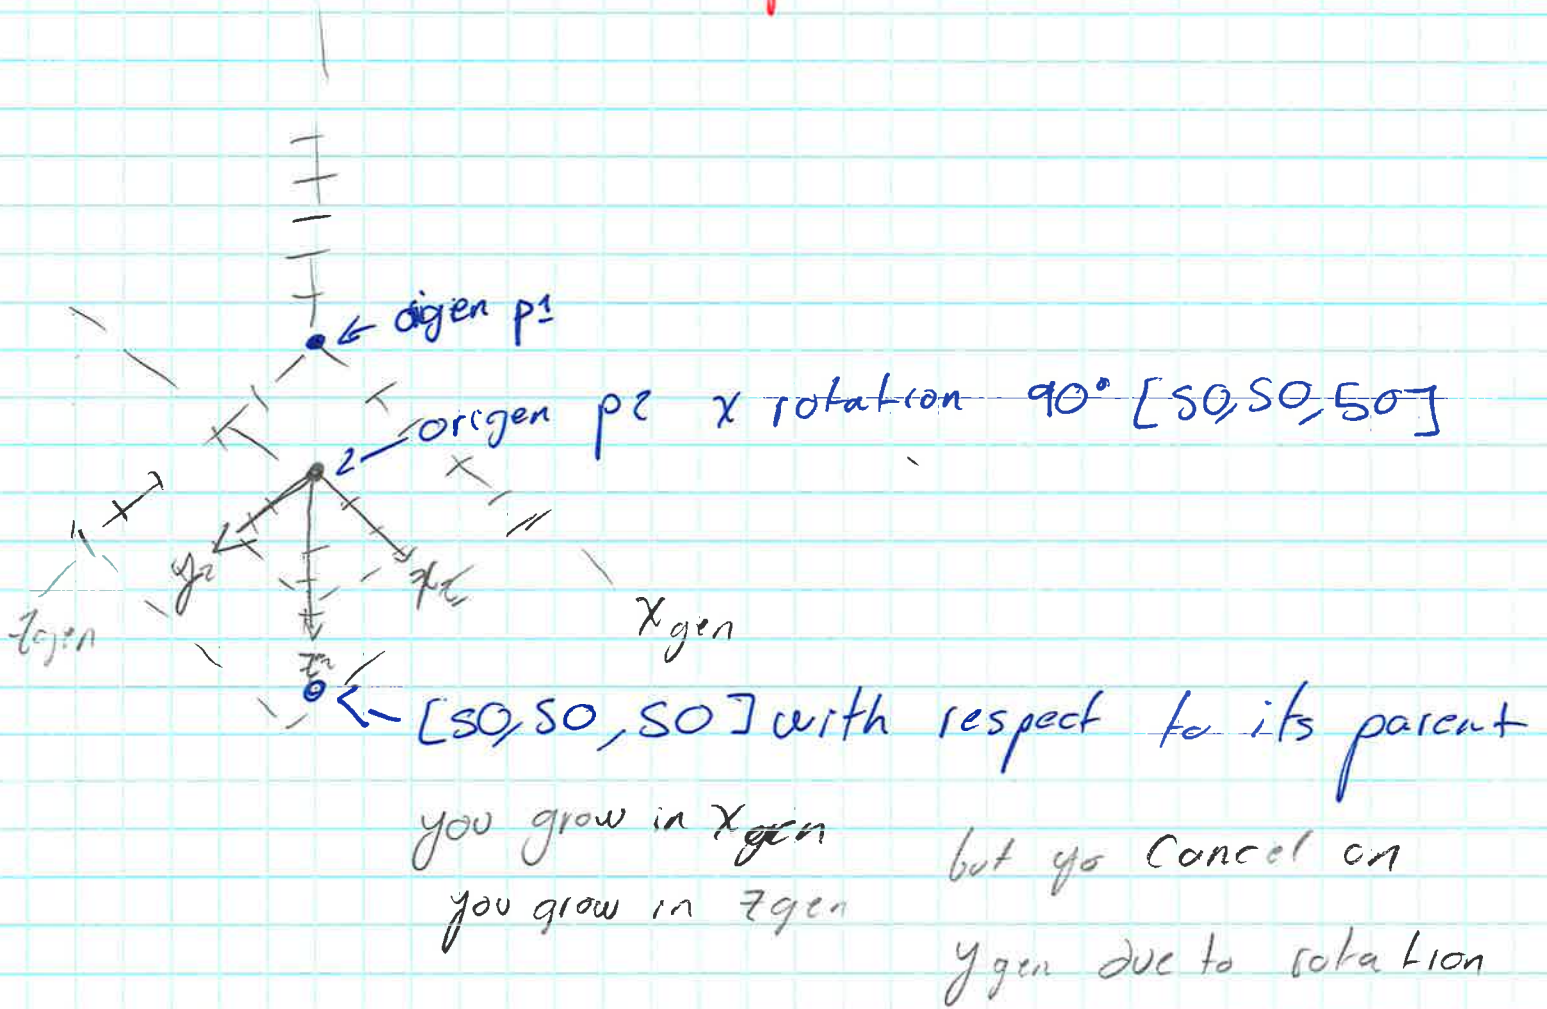 origen p1
origen p2 x rotation 90° [50,50,50]
2
y2
x2
zgen
xgen
z2
[50,50,50] with respect to its parent
you grow in xgen but yo Cancel on
you grow in zgen ygen due to rotation